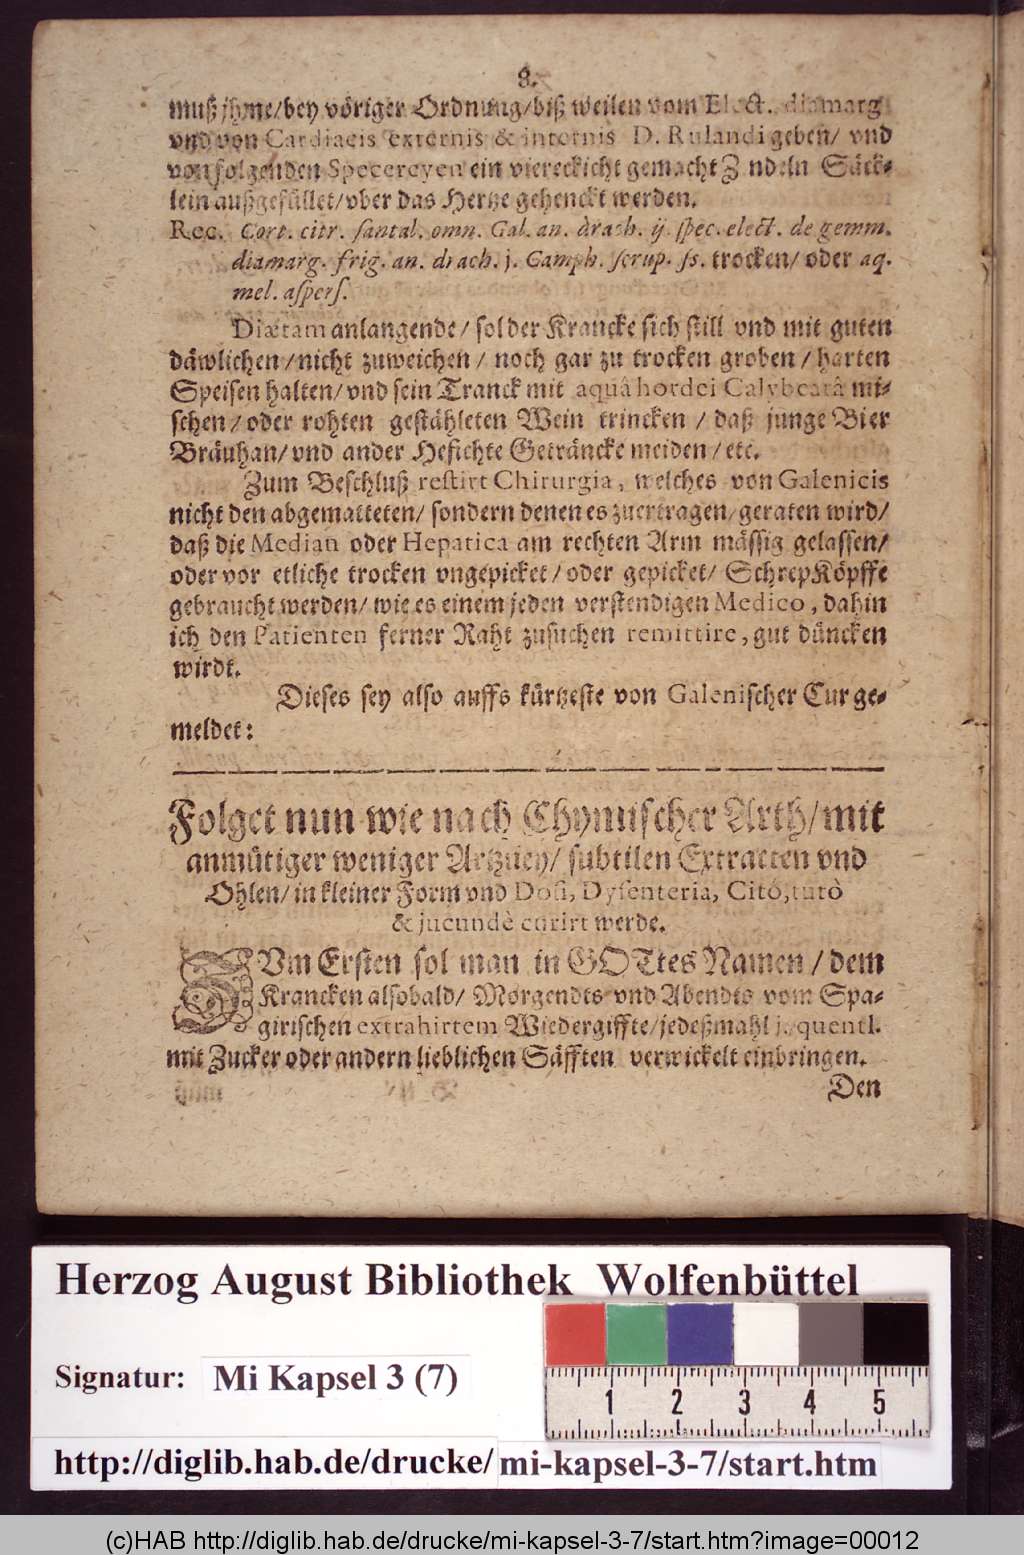 8.
muß jhme/bey vöriger Ordnung/biß weilen vom Elect. diamarg
vnd von Cardiacis externis & internis D. Rulandi geben/ vnd
von folgenden Specereyen ein viereckicht gemacht Z ndeln Säck-
lein außgefüllet/vber das Hertze gehenckt werden.
Rec. Cort. citr. santal. omn. Gal. an. drach. ij. spec. elect. de gemm.
diamarg. frig. an. drach. j. Camph. scrup. ss. trocken/ oder aq.
mel. aspers.
Diætam anlangende/ sol der Krancke sich still vnd mit guten
däwlichen/nicht zuweichen/ noch gar zu trocken groben/harten
Speisen halten/vnd sein Tranck mit aquâ hordei Calybeatâ mi-
schen/oder rohten gestähleten Wein trincken/ daß junge Bier
Bräuhan/vnd ander Hefichte Geträncke meiden/etc.
Zum Beschluß restirt Chirurgia, welches von Galenicis
nicht den abgematteten/ sondern denen es zuertragen/geraten wird/
daß die Median oder Hepatica am rechten Arm mässig gelassen/
oder vor etliche trocken vngepicket/oder gepicket/ SchrepKöpffe
gebraucht werden/ wie es einem jeden verstendigen Medico, dahin
ich den Patienten ferner Raht zusuchen remittire, gut düncken
wirdt.
Dieses sey also auffs kürtzeste von Galenischer Cur ge-
meldet:
Folget nun wie nach Chymischer Arth/mit
anmütiger weniger Artzney/ subtilen Extracten vnd
Ohlen/in kleiner Form vnd Dosi, Dysenteria, Citò, tutò
& jucundè curirt werde.
ZVm Ersten sol man in GOTtes Namen/dem
Krancken alsobald/ Morgendts vnd Abendts vom Spa-
girischen extrahirtem Wiedergiffte/jedeßmahl j. quentl.
mit Zucker oder andern lieblichen Säfften verwickelt einbringen.
Den
Herzog August Bibliothek Wolfenbüttel
Signatur: Mi Kapsel 3 (7)
1 2 3 4 5
http://diglib.hab.de/drucke/mi-kapsel-3-7/start.htm
(c)HAB http://diglib.hab.de/drucke/mi-kapsel-3-7/start.htm?image=00012